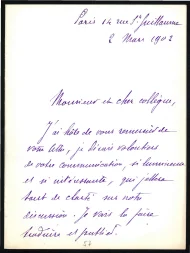 Paris 14 rue St Guillaume
2 Mars 1902
Monsieur et cher collègue,
J'ai hâte de vous remercier de
votre lettre, je dirais volontiers
de votre communication, si lumineuse
et si intéressante, qui jettera
tant de clarté sur notre
discussion. Je vais la faire
traduire et